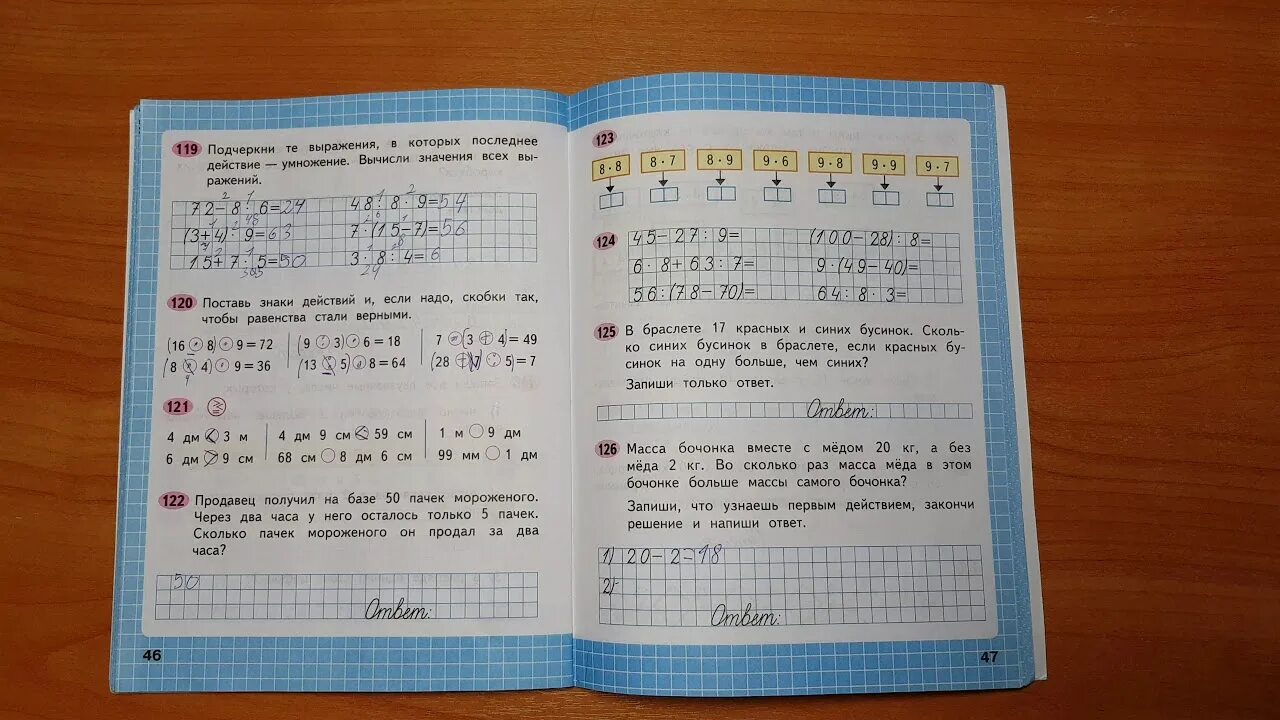 119 Подчеркни те выражения, в которых последнее
действие — умножение. Вычисли значения всех вы-
ражений.
72-8·6=24 48:8·9=54
(3+4)·9=63 7·(15-7)=56
15+7·5=50 3·8:4=6
120 Поставь знаки действий и, если надо, скобки так,
чтобы равенства стали верными.
(16 8) 9 = 72 (9 : 3) · 6 = 18 7 · (3 + 4) = 49
(8 4) 9 = 36 (13 5) 8 = 64 (28 + 7) : 5) = 7
121
4 дм < 3 м 4 дм 9 см < 59 см 1 м 9 дм
6 дм > 9 см 68 см 8 дм 6 см 99 мм 1 дм
122 Продавец получил на базе 50 пачек мороженого.
Через два часа у него осталось только 5 пачек.
Сколько пачек мороженого он продал за два
часа?
50
Ответ:
46
123
8·8 8·7 8·9 9·6 9·8 9·9 9·7
124 45-27:9= (100-28):8=
6·8+63:7= 9·(49-40)=
56:(78-70)= 64:8·3=
125 В браслете 17 красных и синих бусинок. Сколь-
ко синих бусинок в браслете, если красных бу-
синок на одну больше, чем синих?
Запиши только ответ.
Ответ:
126 Масса бочонка вместе с мёдом 20 кг, а без
мёда 2 кг. Во сколько раз масса мёда в этом
бочонке больше массы самого бочонка?
Запиши, что узнаешь первым действием, закончи
решение и напиши ответ.
1) 20-2=18
2)
Ответ:
47